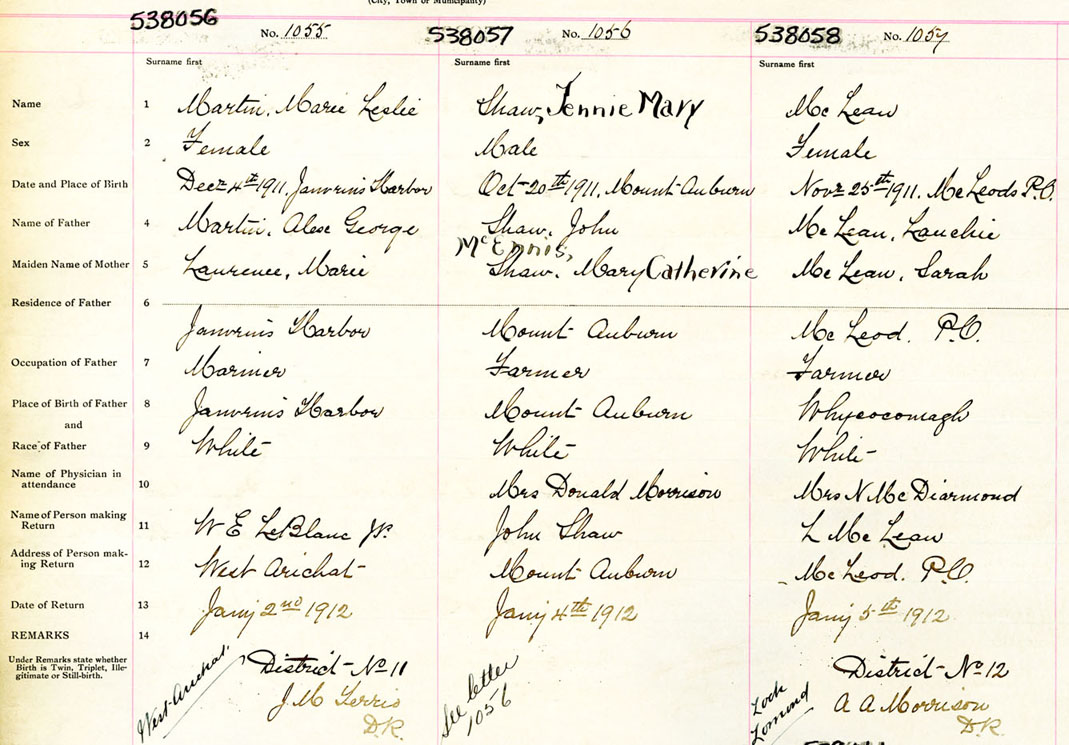 (City, Town or Municipality)
538056 No. 1055 538057 No. 1056 538058 No. 1057
Surname first Surname first Surname first
Name 1 Martin, Marie Leslie Shaw, Jennie Mary Mc Lean
Sex 2 Female Male Female
Date and Place of Birth 3 Decr 4th 1911, Janvrins Harbor Oct 20th 1911, Mount Auburn Novr 25th 1911. Mc Leods P.O.
Name of Father 4 Martin, Alex George Shaw, John Mc Lean, Lauchie
McEnnis,
Maiden Name of Mother 5 Laurence, Marie Shaw, Mary Catherine Mc Lean, Sarah
Residence of Father 6
Janvrins Harbor Mount Auburn Mc Leod. P.O.
Occupation of Father 7 Mariner Farmer Farmer
Place of Birth of Father 8 Janvrins Harbor Mount Auburn Whycocomagh
and
Race of Father 9 White White White
Name of Physician in
attendance 10 Mrs Donald Morrison Mrs N McDiarmond
Name of Person making
Return 11 W E LeBlanc Jr. John Shaw L Mc Lean
Address of Person mak-
ing Return 12 West Arichat Mount Auburn Mc Leod. P.O.
Date of Return 13 Jany 2nd 1912 Jany 4th 1912 Jany 5th 1912
REMARKS 14
Under Remarks state whether
Birth is Twin, Triplet, Ille-
gitimate or Still-birth.
West Arichat. District No 11 See letter District No 12
J M Terrio 1056 Loch Lomond A A Morrison
D.R. D.R.